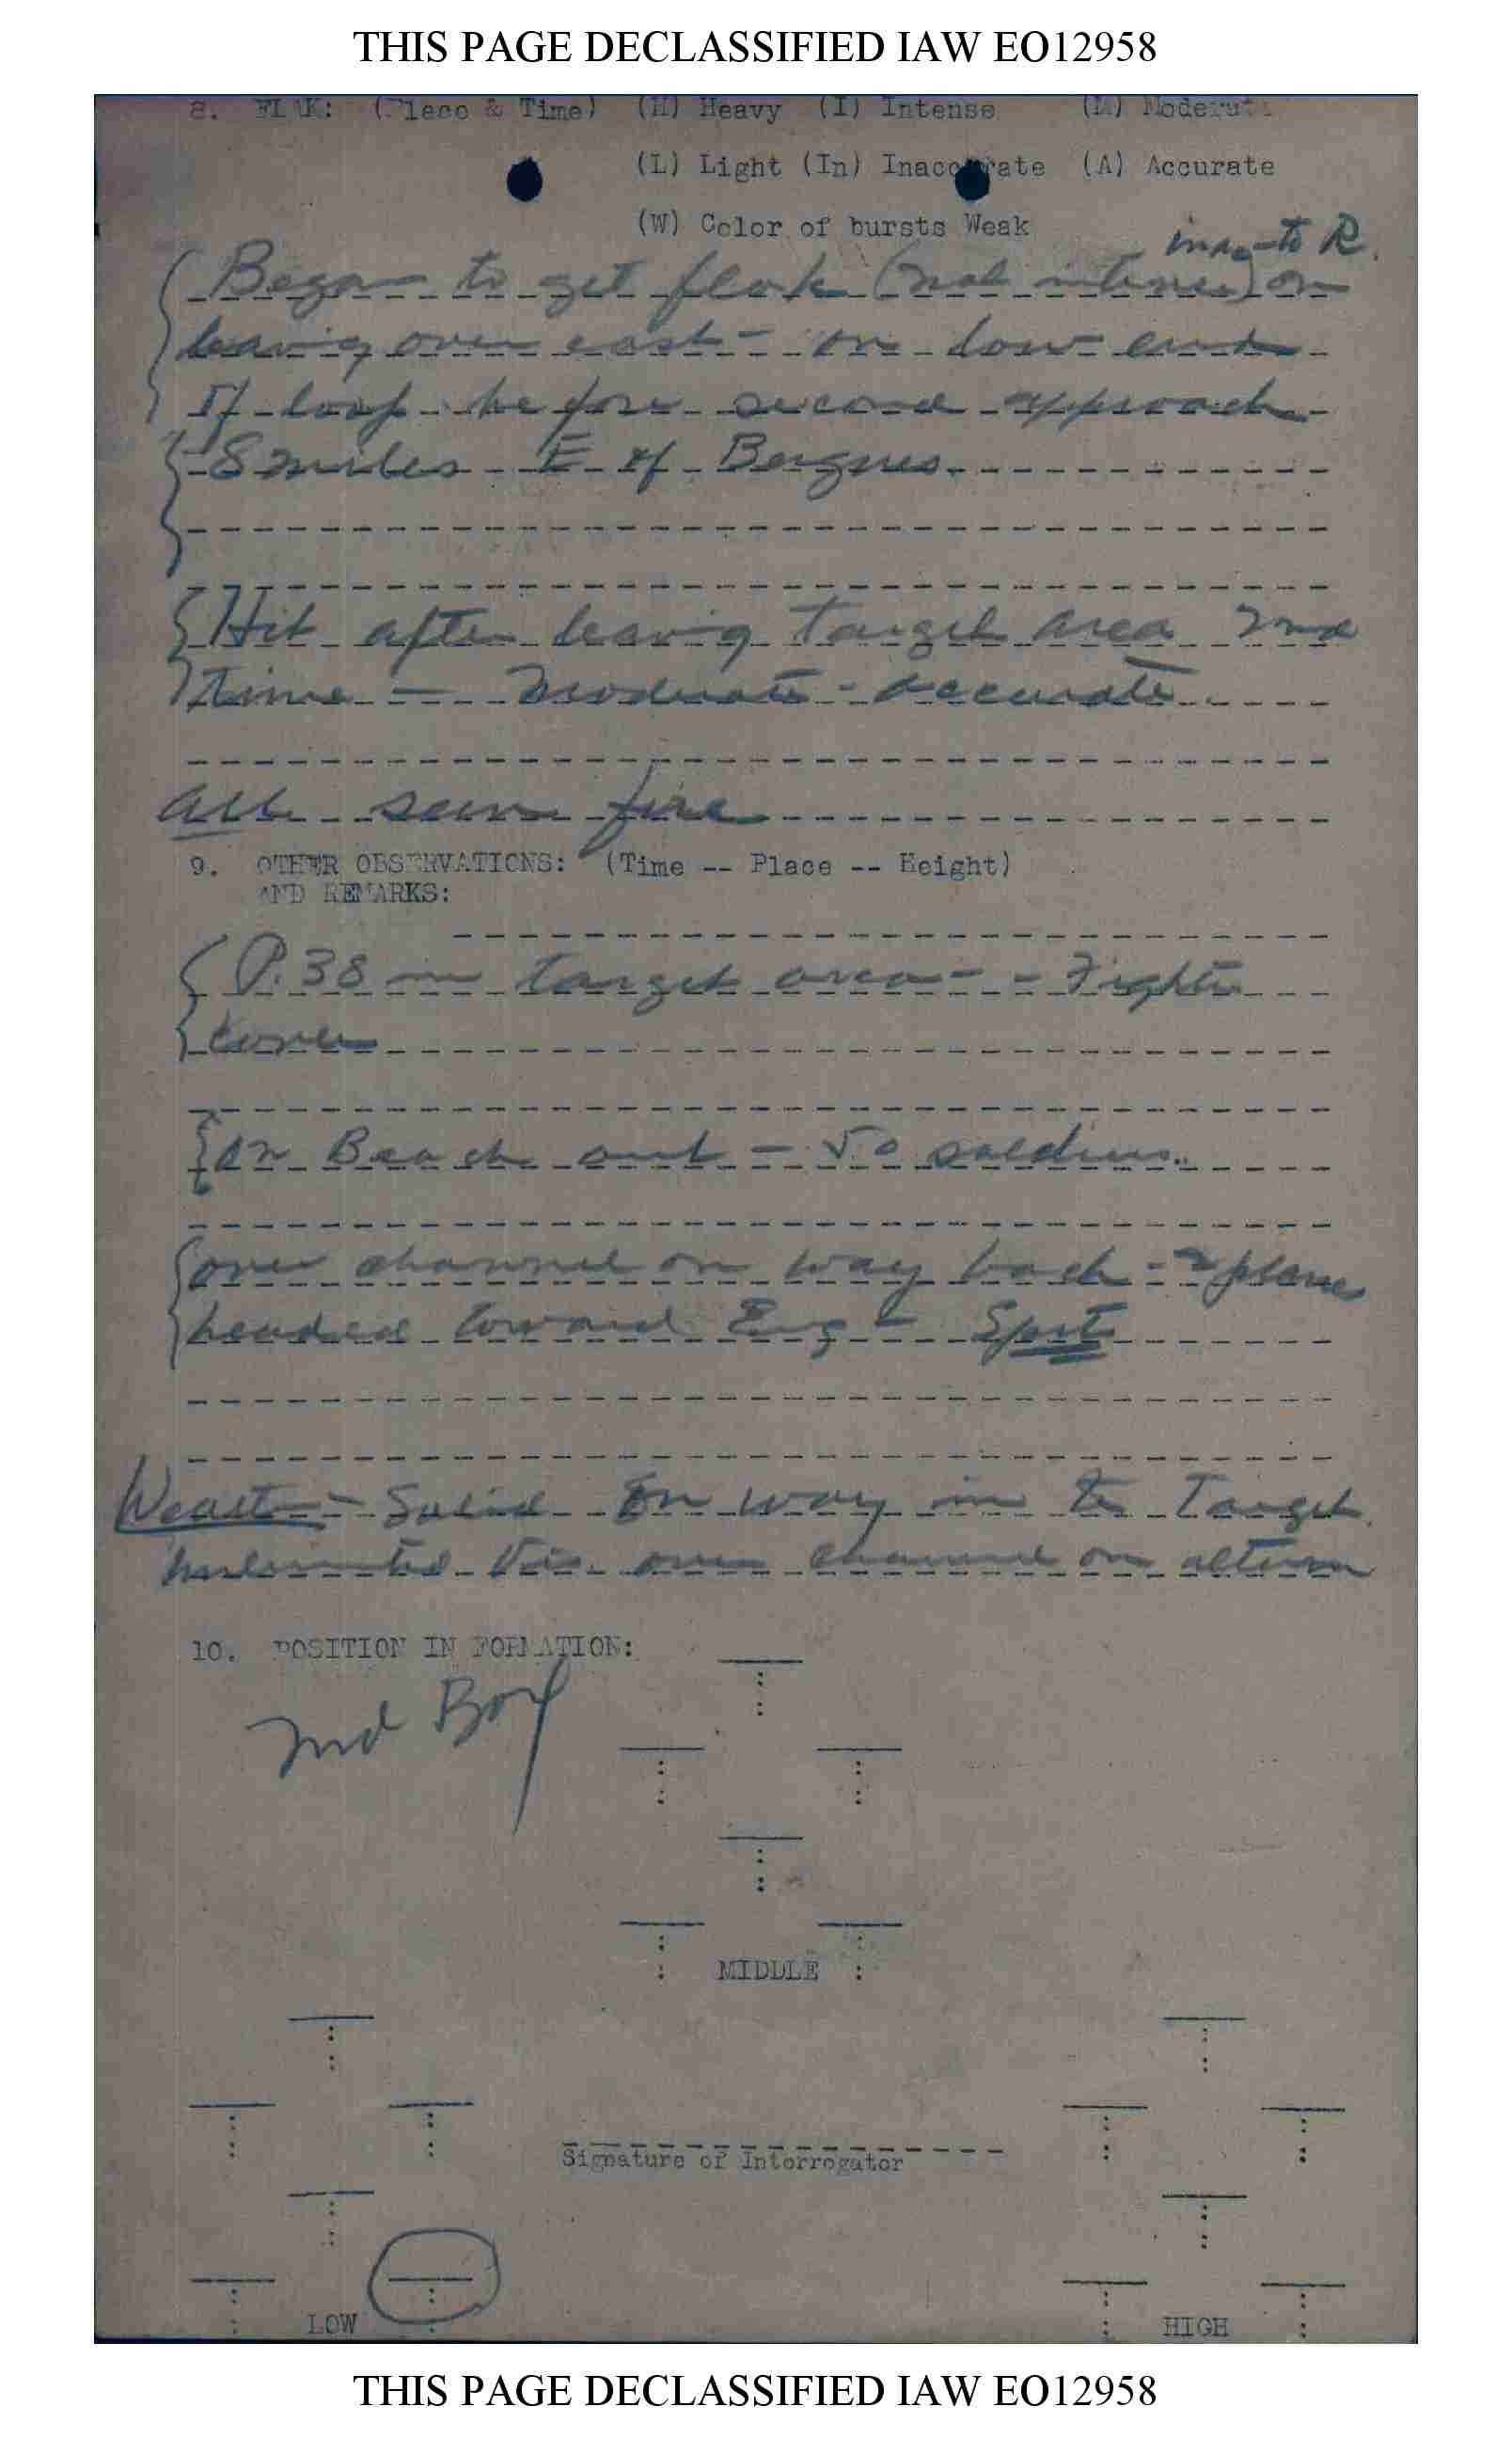 THIS PAGE DECLASSIFIED IAW EO12958
8. FLAK: (Place & Time) (H) Heavy (I) Intense (M) Moderate
(L) Light (In) Inaccurate (A) Accurate
(W) Color of bursts Weak
inac - to R.
Began to get flak (not intense) on
leaving over east - on low end
of loop before second approach
8 miles E of Bergues.
Hit after leaving target area 2nd
time - moderate - accurate
All seem fine
9. OTHER OBSERVATIONS: (Time -- Place -- Height)
AND REMARKS:
P.38 in target area - - Fighter
cover
On Beach out - 50 soldiers.
over channel on way back - 2 planes
headed toward Eng -
- Solid on way in to Target.
unlimited Vis. over channel on
10. POSITION IN FORMATION:
MIDDLE
Signature of Interrogator
LOW
HIGH
THIS PAGE DECLASSIFIED IAW EO12958